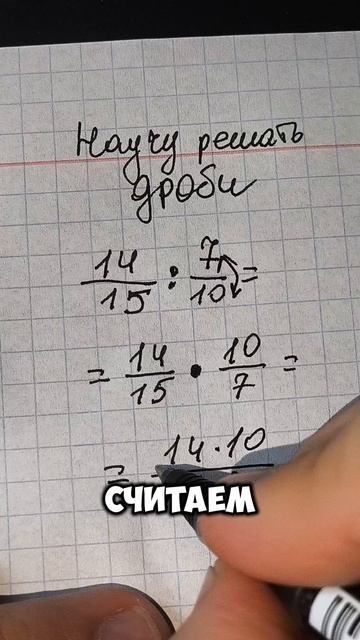 Научу решать
дроби
14/15 : 7/10 =
= 14/15 · 10/7 =
= 14·10
СЧИТАЕМ